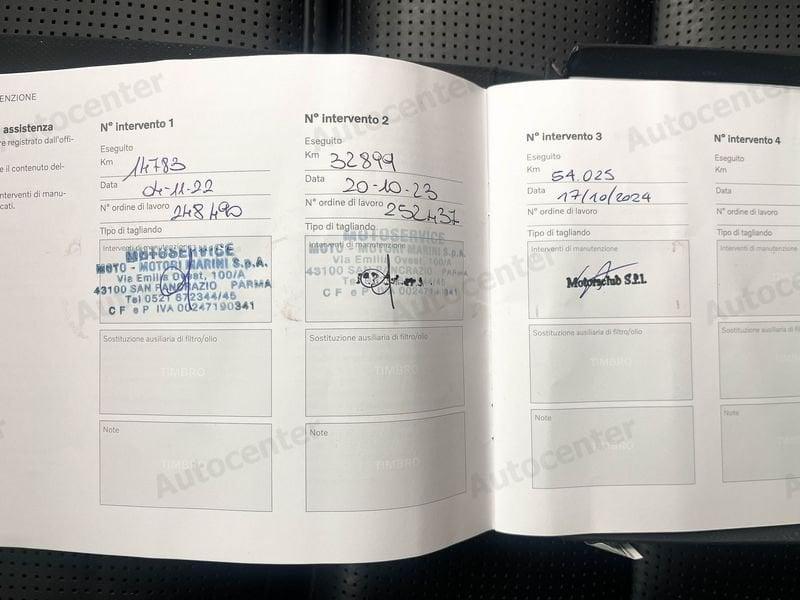 ENZIONE
assistenza
re registrato dall'offi-
e il contenuto del-
nterventi di manu-
cati.
N° intervento 1
Eseguito
Km 14783
Data 04-11-22
N° ordine di lavoro 248490
Tipo di tagliando
Interventi di manutenzione
MOTOSERVICE
MOTO - MOTORI MARINI S.p.A.
Via Emilia Ovest, 100/A
43100 SAN PANCRAZIO PARMA
Tel 0521 672344/45
C F e P IVA 00247190341
Sostituzione ausiliaria di filtro/olio
TIMBRO
Note
TIMBRO
N° intervento 2
Eseguito
Km 32899
Data 20-10-23
N° ordine di lavoro 252437
Tipo di tagliando
Interventi di manutenzione
MOTOSERVICE
MOTO - MOTORI MARINI S.p.A.
Via Emilia Ovest, 100/A
43100 SAN PANCRAZIO PARMA
C F e P IVA 00247190341
Sostituzione ausiliaria di filtro/olio
TIMBRO
Note
TIMBRO
N° intervento 3
Eseguito
Km 54.025
Data 17/10/2024
N° ordine di lavoro
Tipo di tagliando
Interventi di manutenzione
Motorsclub S.r.l.
Sostituzione ausiliaria di filtro/olio
TIMBRO
Note
TIMBRO
N° intervento 4
Eseguito
Km
Data
N° ordine di lavoro
Tipo di tagliando
Interventi di manutenzione
Sostituzione ausiliaria di
Note
Autocenter
Autocenter
Autocenter
Autocenter
Autocenter